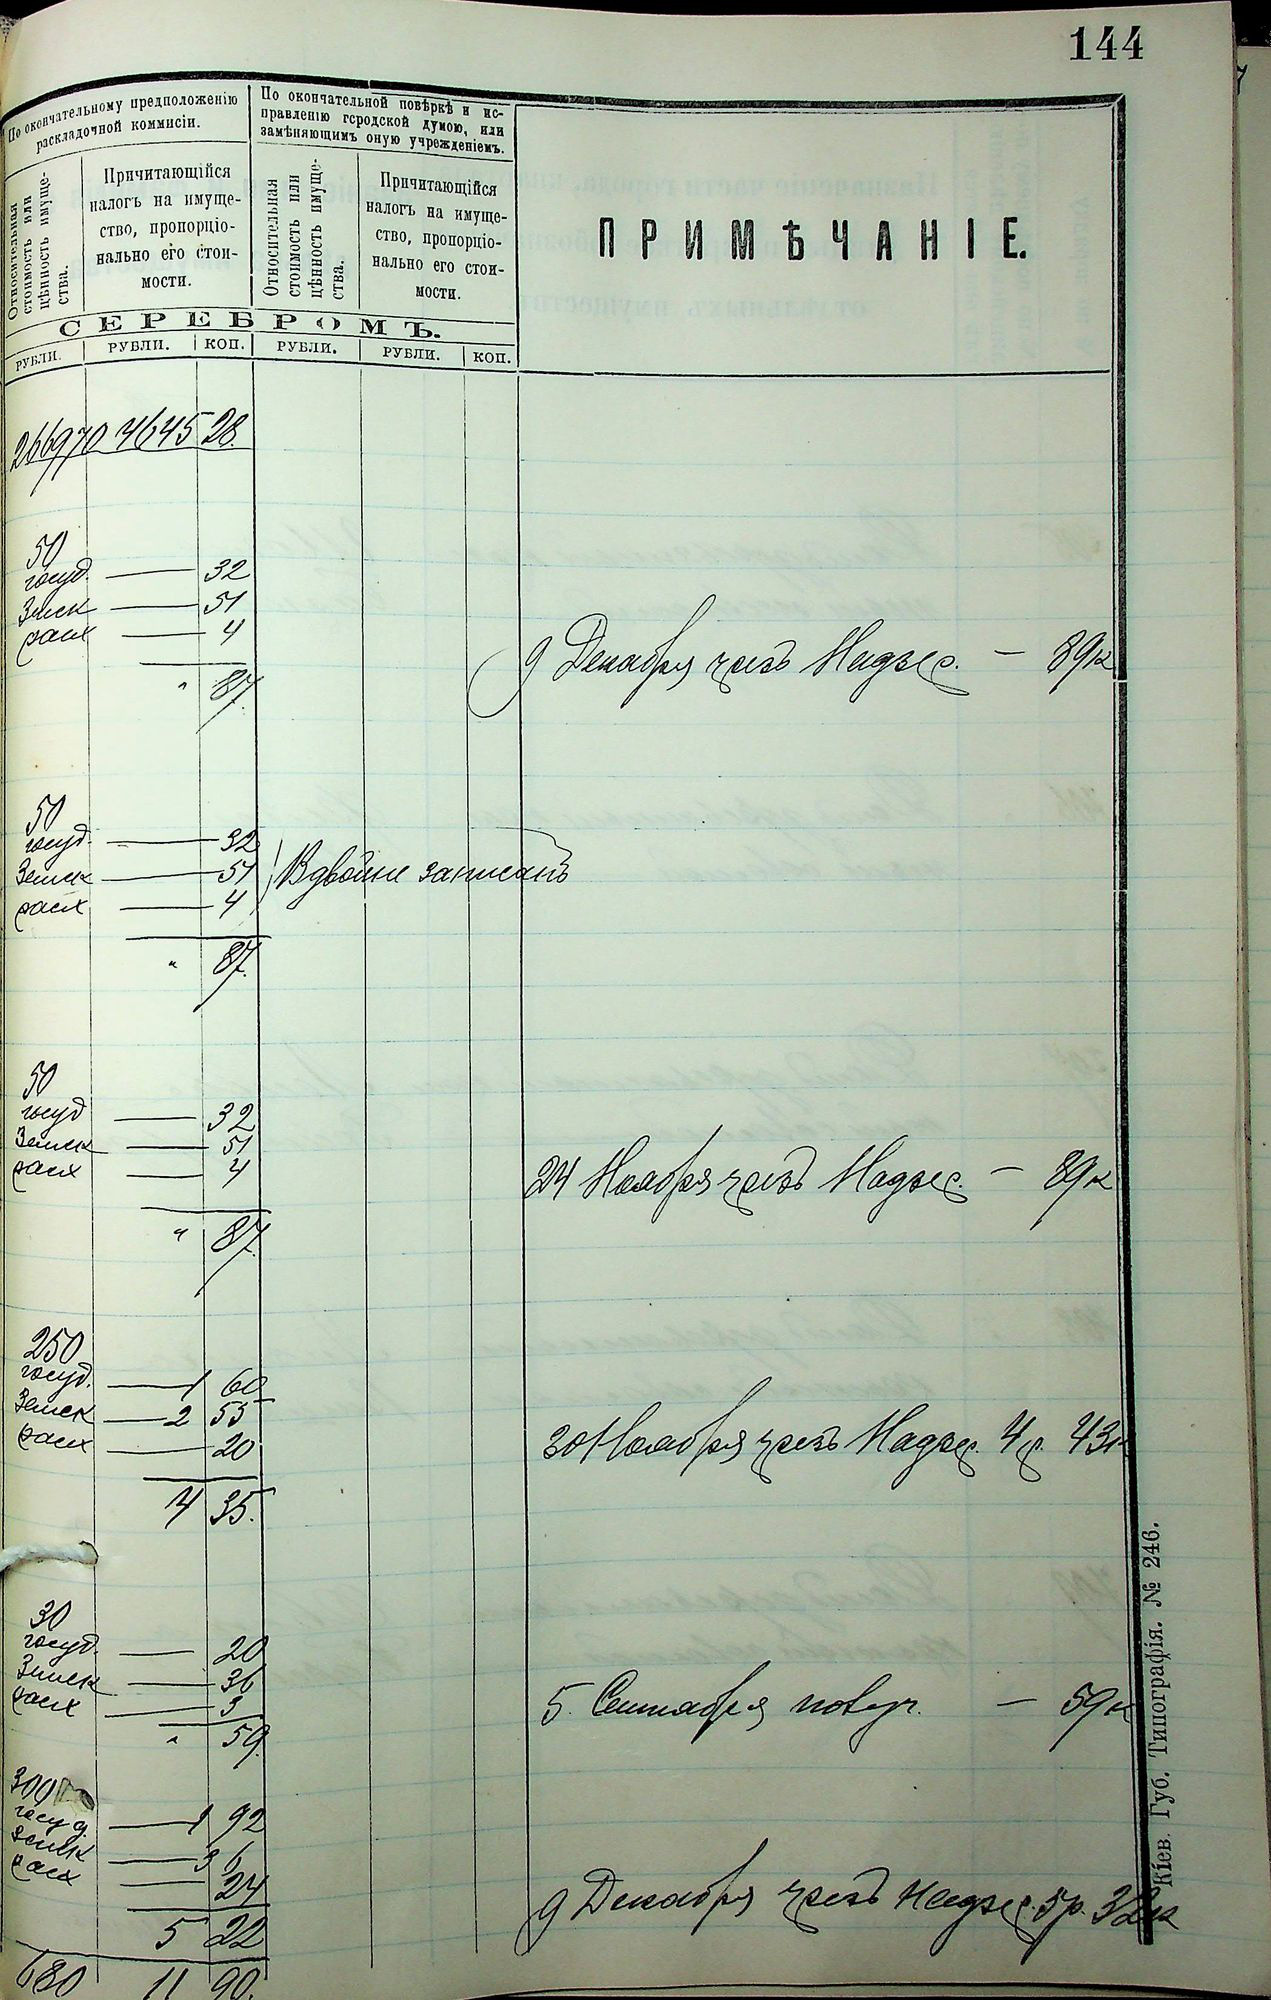 144
По окончательному предположенію
раскладочной коммисіи.
По окончательной повѣркѣ и ис-
правленію городской думою, или
замѣняющимъ оную учрежденіемъ.
Относительная
стоимость или
цѣнность имуще-
ства.
Причитающійся
налогъ на имуще-
ство, пропорціо-
нально его стои-
мости.
Относительная
стоимость или
цѣнность имуще-
ства.
Причитающійся
налогъ на имуще-
ство, пропорціо-
нально его стои-
мости.
ПРИМѢЧАНІЕ.
СЕРЕБРОМЪ.
РУБЛИ. РУБЛИ. КОП. РУБЛИ. РУБЛИ. КОП.
266970 4645 28.
50
госуд. — 32
Земск — 51
расх — 4
9 Декабря чрезъ Надзес. — 89к
" 87.
50
госуд. — 32
Земск — 51 Вдвойне записанъ
расх — 4
" 87.
50
госуд — 32
Земск — 51
расх — 4
24 Ноября чрезъ Надзес. — 89к
" 87.
250
госуд. — 1 60
Земск — 2 55
расх — 20
30 Ноября чрезъ Надзс. 4р. 43к
4 35.
30
госуд. — 20
Земск — 36
расх — 3
5 Сентября — 59к
" 59.
300
госуд. — 1 92
земск — 3 6
расх — 24
9 Декабря чрезъ Надзес. 5р. 32к
5 22
680 11 90.
Кіев. Губ. Типографія. № 246.